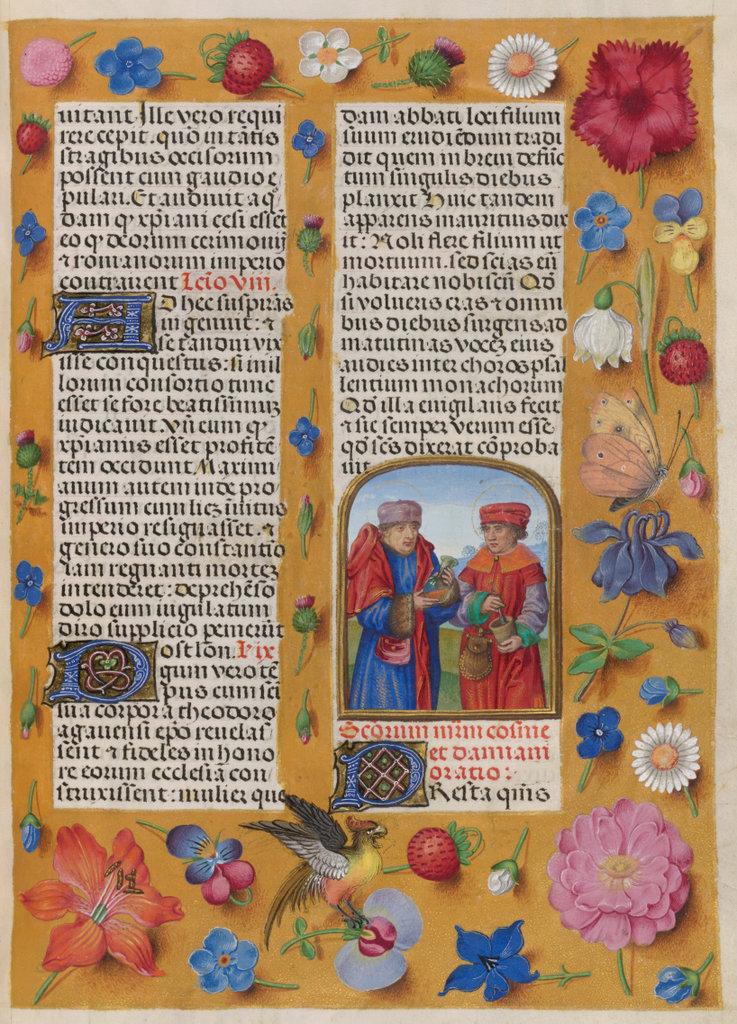 uitant. Ille vero requi
rere cepit. quo in tātis
stragibus occisorum
possent cum gaudio e
pulari. Et audiuit a q̄
dam q̄ xp̄iani cesi essēt
eo q̄ deorum cerimonijs
⁊ romanorum imperio
contrairent Lcīo viij.
Ad hec suspirās
ingenuit: ⁊
se tandiu vix
isse conquestus: si mil
lorum consortio tunc
esset se fore beatissimū
iudicauit. Vn̄ cum q̄
xp̄ianus esset profitē
tem occidunt. Maximi
anum autem in de pro
gressum cum licz inuitus
imperio resignasset. ⁊
genero suo constantio
iam regnanti mortez
intenderet: deprehēso
dolo eum iugulatum
diro supplicio pemerūt
Post lon. Lix
gum vero tē
pus cum sc̄i
sua corpora theodoro
agauensi epō reuelas
sent ⁊ fideles in hono
re eorum ecclesiā con
struxissent: mulier que
dam abbati loci filium
suum erudiēdum tradi
dit quem in breui defūc
tum singulis diebus
planxit Huic tandem
apparens mauritius dix
it: Noli flere filium ut
mortuum. sed scias eū
habitare nobiscū Qd̄
si volueris cras ⁊ omni
bus diebus surgens ad
matutinas vocē eius
audies inter choros psal
lentium monachorum
Qd̄ illa euigilans fecit
⁊ sic semper verum esse
qd̄ scs̄ dixerat cōproba
uit
Scōrum mr̄m cosme
et damiani
oratio:
Presta quis